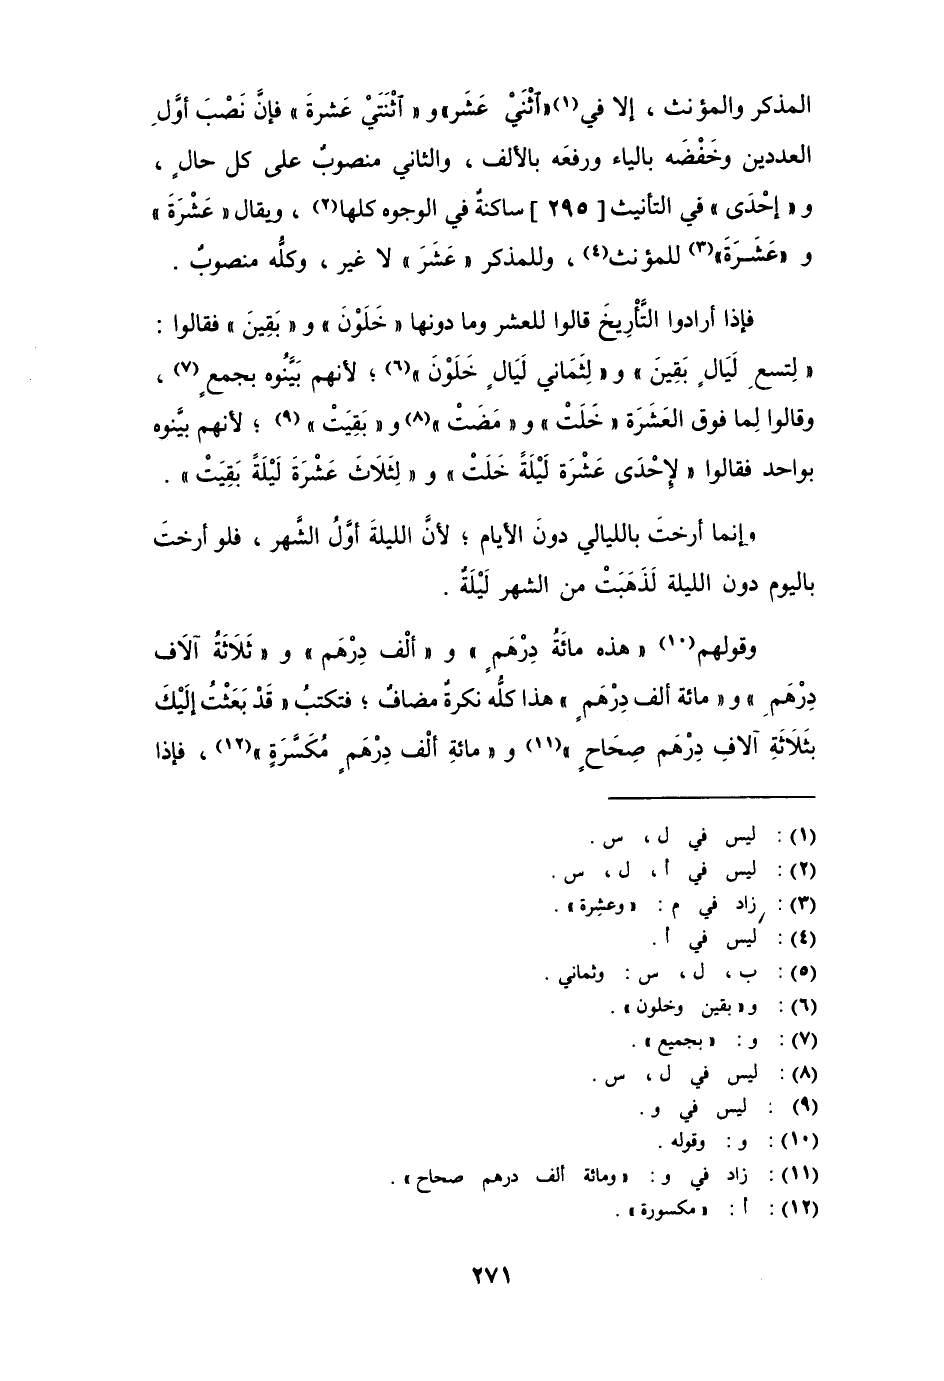 المذكر والمؤنث ، إلا في(١)«ٱثْنَيْ عَشَر»و « ٱثْنَتَيْ عَشرةَ » فإنَّ نَصْبَ أوَّلِ
العددين وخَفْضَه بالياء ورفعَه بالألف ، والثاني منصوبٌ على كل حالٍ ،
و « إحْدَى » في التأنيث [ ٢٩٥ ] ساكنةٌ في الوجوه كلها(٢) ، ويقال « عَشْرَةَ »
و «عَشَرَةَ»(٣) للمؤنث(٤) ، وللمذكر « عَشَرَ » لا غير ، وكلُّه منصوبٌ .
فإذا أرادوا التَّأْرِيخَ قالوا للعشر وما دونها « خَلَوْنَ » و « بَقِينَ » فقالوا :
« لِتسعِ لَيَالٍ بَقِينَ » و « لِثَمَاني لَيَالٍ خَلَوْنَ »(٦) ؛ لأنهم بَيَّنُوه بجمعٍ(٧) ،
وقالوا لِما فوق العَشَرَة « خَلَتْ » و « مَضَتْ »(٨)و « بَقِيَتْ » (٩) ؛ لأنهم بيَّنوه
بواحد فقالوا « لِإحْدَى عَشْرَة لَيْلَةً خَلَتْ » و « لِثَلَاثَ عَشْرَةَ لَيْلَةً بَقِيَتْ » .
وإنما أرختَ بالليالي دونَ الأيام ؛ لأنَّ الليلةَ أوَّلُ الشَّهر ، فلو أرختَ
باليوم دون الليلة لَذَهَبَتْ من الشهر لَيْلَةٌ .
وقولهم(١٠) « هذه مائَةُ دِرْهَمٍ » و « ألْف دِرْهَم » و « ثَلَاثَةُ آلَاف
دِرْهَمِ » و « مائة ألف دِرْهَمٍ » هذا كلُّه نكرةٌ مضافٌ ؛ فتكتبُ « قَدْ بَعَثْتُ إلَيْكَ
بثَلَاثَةِ آلافِ دِرْهَم صِحَاحٍ »(١١) و « مائةِ ألْف دِرْهَمٍ مُكَسَّرَةٍ »(١٢) ، فإذا
(١) : ليس في ل ، س .
(٢) : ليس في أ ، ل ، س .
(٣) : زاد في م : « وعشِرة » .
(٤) : ليس في أ .
(٥) : ب ، ل ، س : وثماني .
(٦) : و « بقين وخلون » .
(٧) : و : « بجميع » .
(٨) : ليس في ل ، س .
(٩) : ليس في و .
(١٠) : و : وقوله .
(١١) : زاد في و : « ومائة ألف درهم صحاح » .
(١٢) : أ : « مكسورة » .
٢٧١